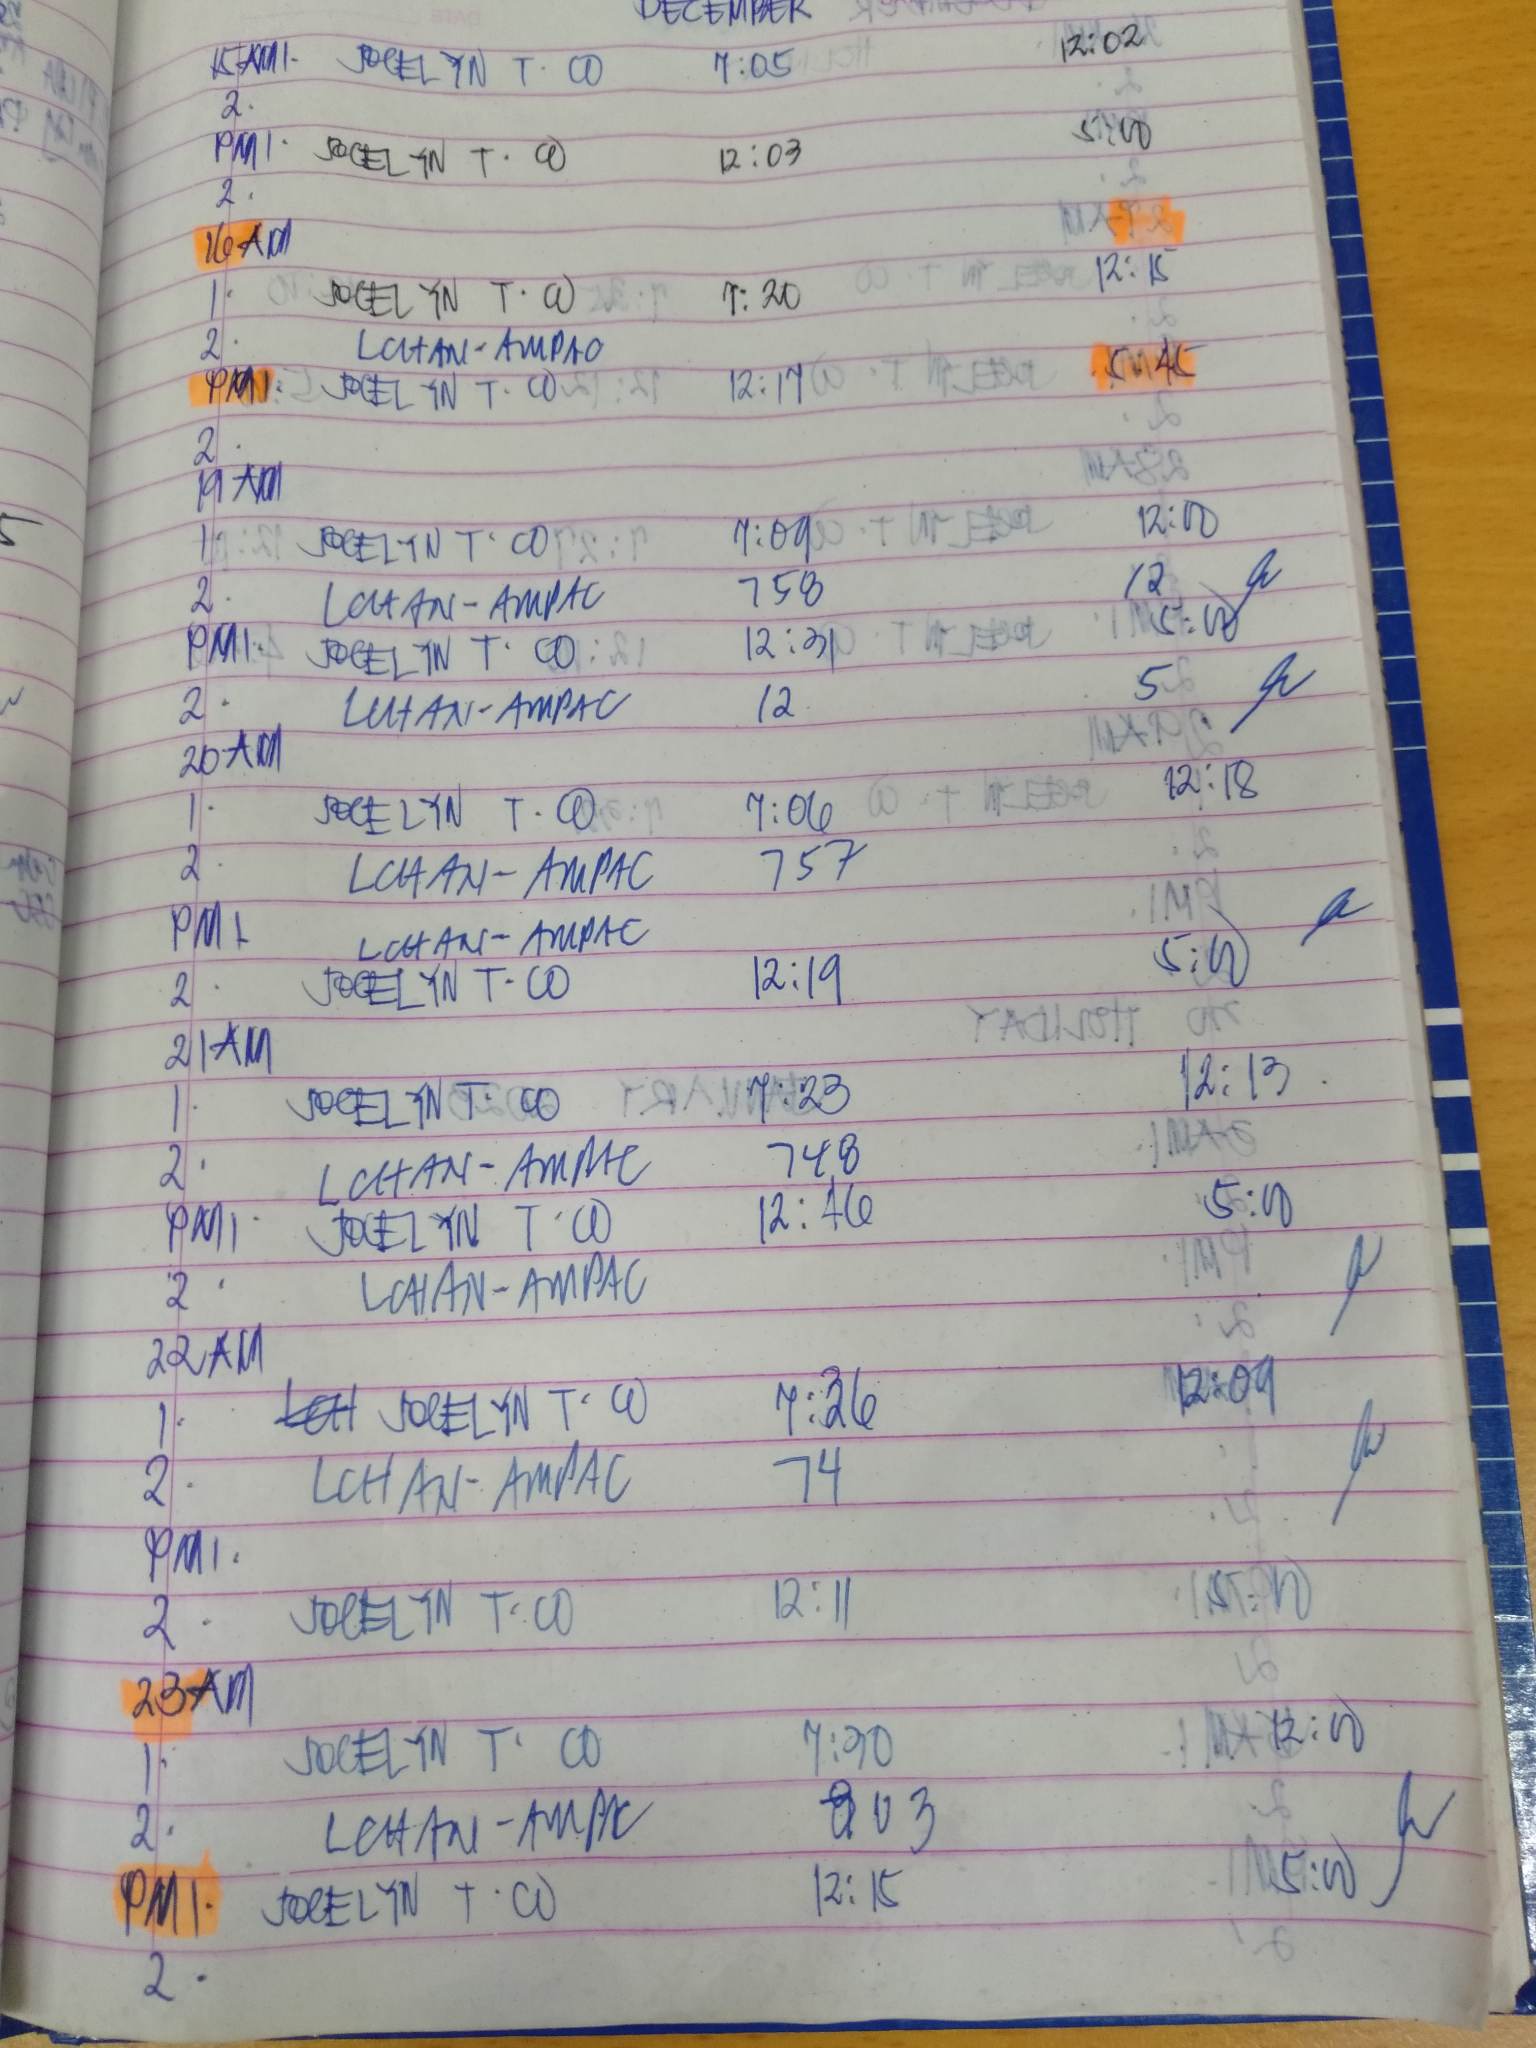 DECEMBER
15 AM 1. JOCELYN T. CO 7:05 12:02
2.
PM 1. JOCELYN T. CO 12:03 5:00
2.
16 AM
1. JOCELYN T. CO 7:20 12:15
2. LCHAN-AMPAO
PM 1 JOCELYN T. CO 12:17 5:45
2.
19 AM
1. JOCELYN T. CO 7:09 12:00
2. LCHAN-AMPAC 758 12
PM 1. JOCELYN T. CO 12:31 5:00
2. LCHAN-AMPAC 12 5
20 AM
1. JOCELYN T. CO 7:06 12:18
2. LCHAN-AMPAC 757
PM 1 LCHAN-AMPAC
2. JOCELYN T. CO 12:19 5:00
21 AM
1. JOCELYN T. CO 7:23 12:13
2. LCHAN-AMPAC 748
PM 1. JOCELYN T. CO 12:16 5:00
2. LCHAN-AMPAC
22 AM
1. JOCELYN T. CO 7:26 12:09
2. LCHAN-AMPAC 74
PM 1.
2. JOCELYN T. CO 12:11 5:00
23 AM
1. JOCELYN T. CO 7:30 12:00
2. LCHAN-AMPAC 803
PM 1. JOCELYN T. CO 12:15 5:00
2.